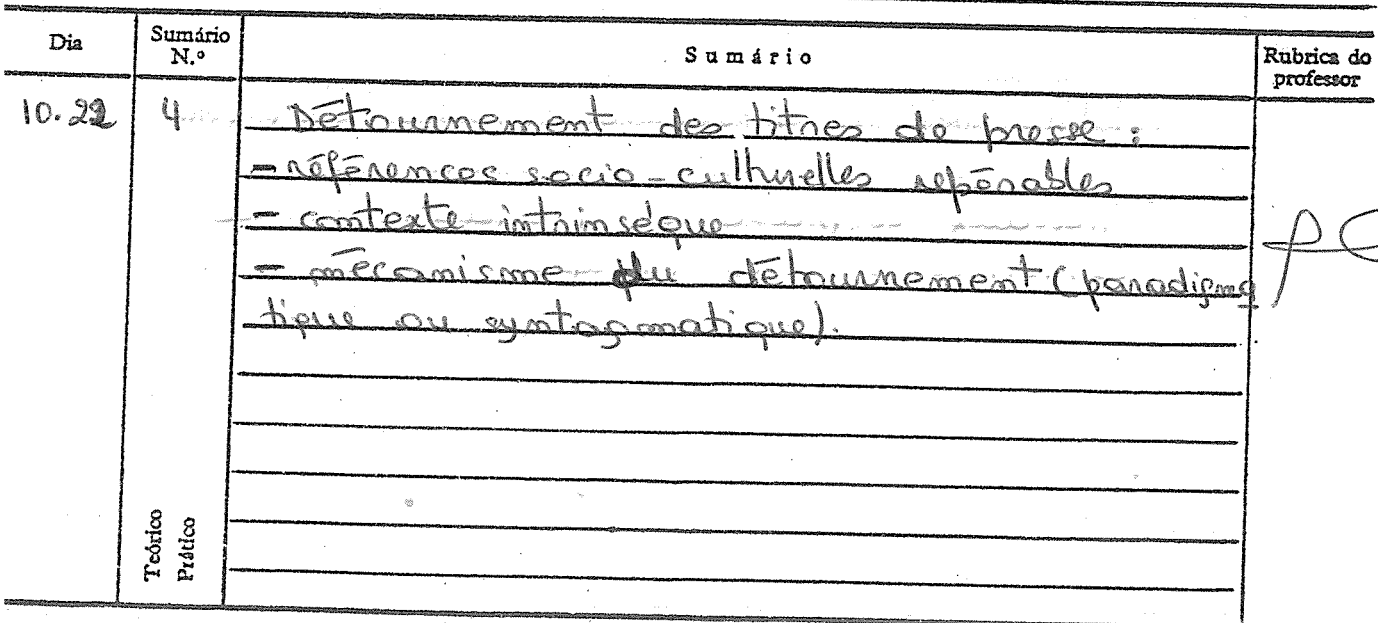 Dia
Sumário N.º
Sumário
Rubrica do professor
10.22
4
Détournement des titres de presse :
- références socio-culturelles repérables
- contexte intrinsèque
- mécanisme du détournement (paradigma
tique ou syntagmatique).
Teórico
Prático